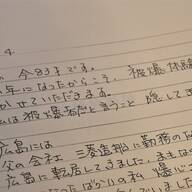 4.
、今83才です。
年になったからこそ、被爆体験
かせていただきます。
は被爆者だと言うこと 隠して
広島には
父の会社 三菱造船に勤務の
広島に転居してきました。
なったばかりの私